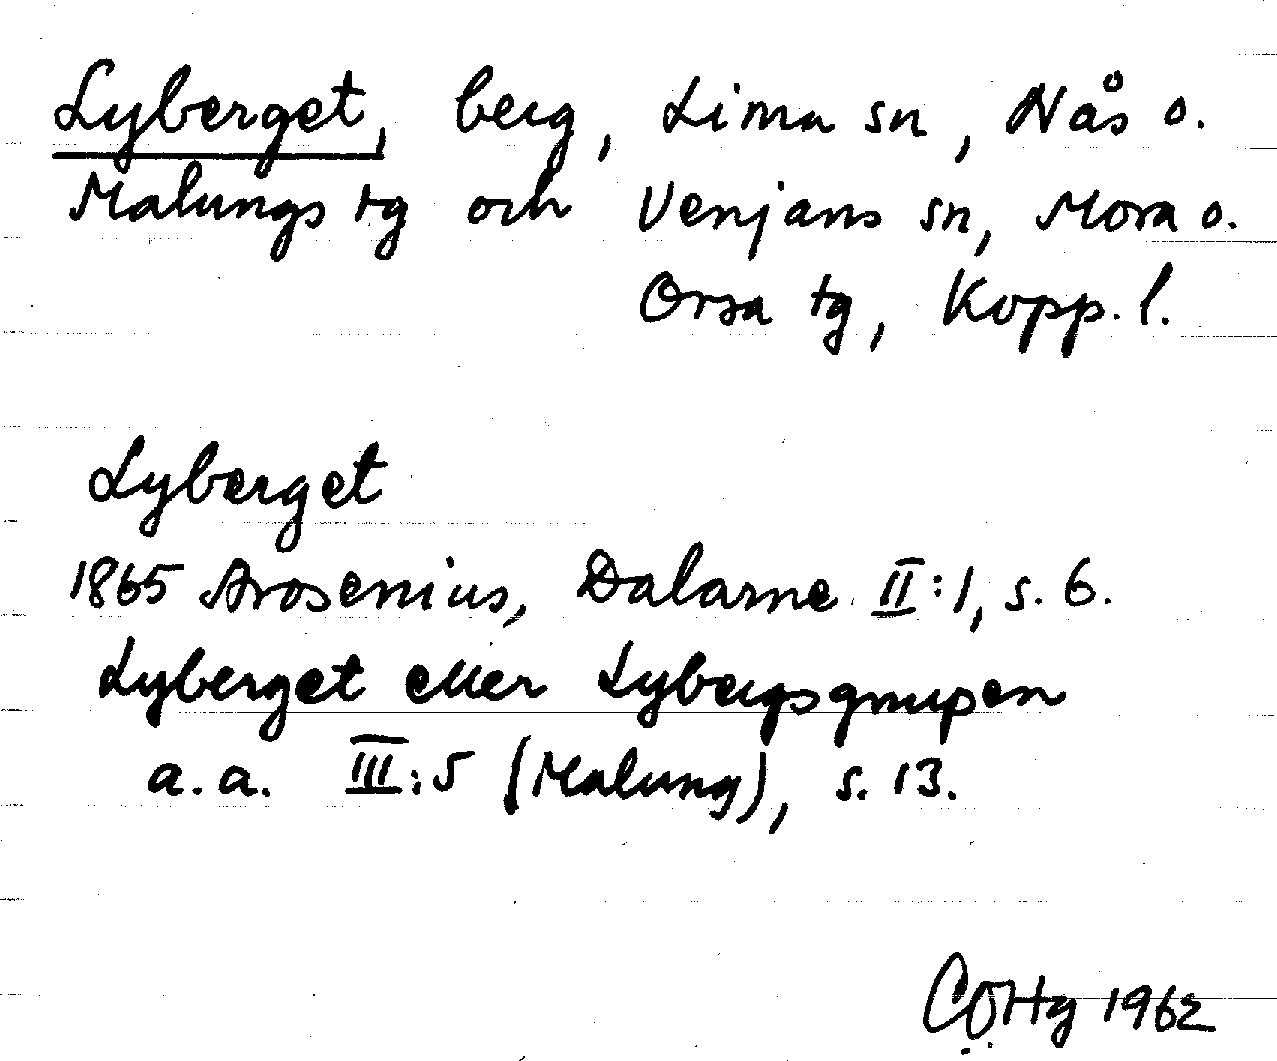 Lyberget, berg, Lima sn, Nås o.
Malungs tg och Venjans sn, Mora o.
Orsa tg, Kopp. l.
Lyberget
1865 Arosenius, Dalarne II:1, s. 6.
Lyberget eller Lybergsgnupen
a.a. III:5 (Malung), s. 13.
1962